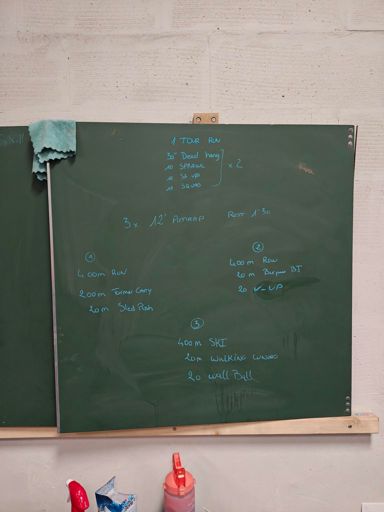 1 TOUR RUN
30" Dead hang
10 SPRAWL
10 Sit UP
10 SQUAD
x 2
3x 12' AMRAP Rest 1'30
①
400m RUN
200m Farmer Carry
20m Sled Push
②
400m Row
20m Burpees BJ
20 V-UP
③
400m SKI
20m WALKING LUNGES
20 Wall Ball